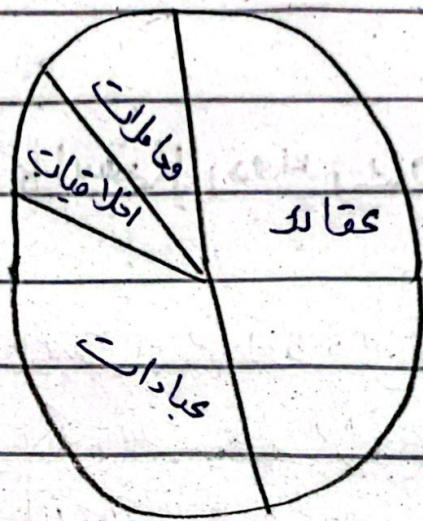 معاملات
اخلاقیات
عقائد
عبادات